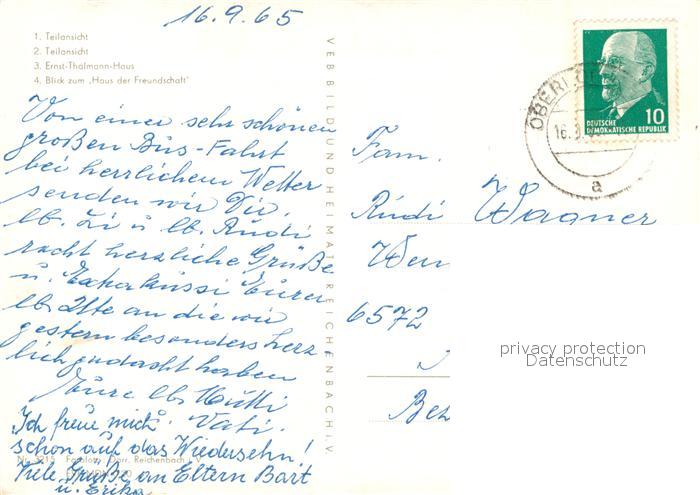 16.9.65
1. Teilansicht
2. Teilansicht
3. Ernst-Thälmann-Haus
4. Blick zum „Haus der Freundschaft"
Von einer sehr schönen
großen Bus-Fahrt
bei herrlichem Wetter
senden wir Dir,
lb. u lb. Rudi
recht herzliche Grüße
u. Extrakussi Eurer
lb. an die wir
gestern besonders herz
lich gedacht haben
Eure lb Mutti
Vati.
„Ich freue mich
schon auf das Wiedersehn!
Viele Grüße an Eltern Bart
u. Erika
Nr. 3215 Reichenbach i. V.
VEB BILD UND HEIMAT REICHENBACH I. V.
DEUTSCHE
DEMOKRATISCHE REPUBLIK
10
OBERL
16.
a
Fam.
Rudi Wagner
6572
privacy protection
Datenschutz